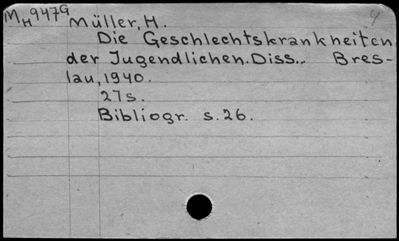 MH9479 Müller, H.
Die Geschlechtskrankheiten
der Jugendlichen. Diss.. Bres-
lau, 1940.
27s.
Bibliogr. s. 26.